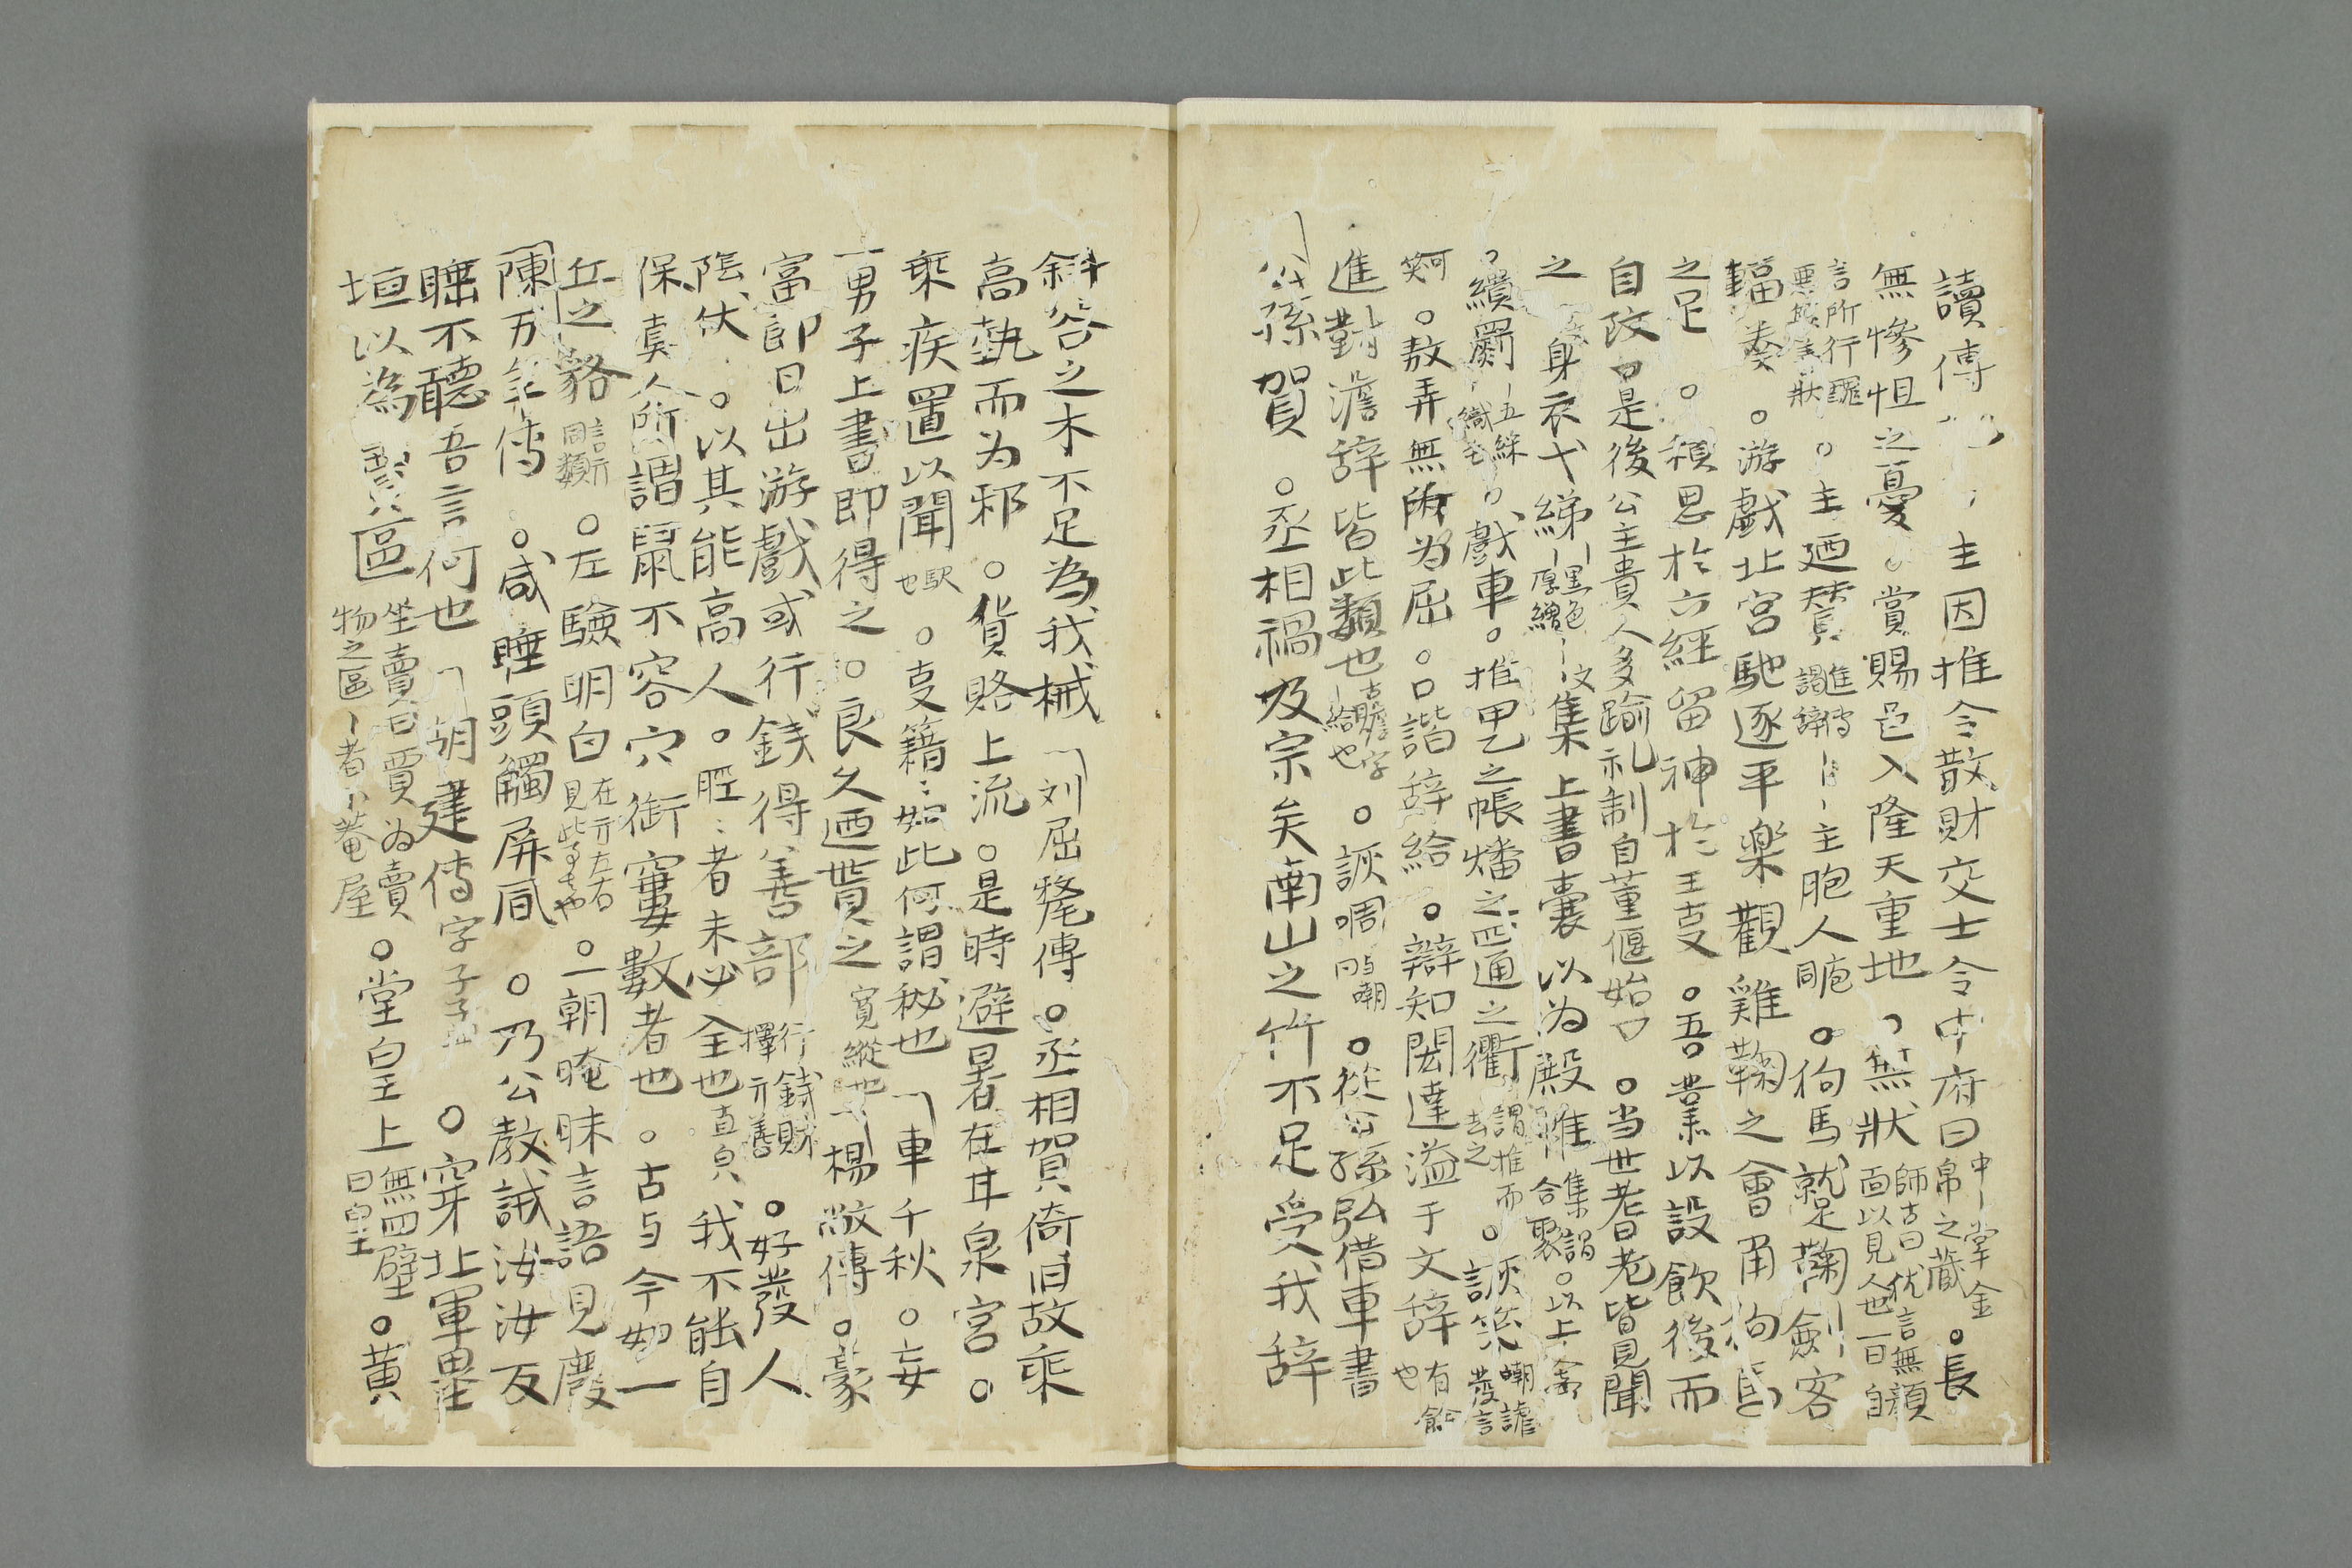 讀傳 主因推令散財交士令中府曰中〡掌金帛之藏。長
無慘怛之憂。賞賜邑入隆天重地。無狀師古曰狀言無顔面以見人也一曰自
言所行醜惡無善狀。主廼贊進傳謁辞〡〡主胞人同庖。狗馬蹵鞠劍客
輻湊。游戲北宮馳逐平楽觀雞鞠之會角狗馬
之足。積思於六經留神於王叓。吾業以設飲後而
自改口是後公主貴人多踰礼制自董偃始。当世耆老皆見聞
之 身衣弋綈〡黒色〡厚繒文集上書囊以为殿帷集謂合聚。以上
。繢罽〡五綵〡織毛。戲車。推甲乙之帳燔之四通之衢謂推而去之。詼笑嘲謔發言
可笑。敖弄無所为屈。口諧辞給。辯知閎達溢于文辞有餘也
進對澹辞皆此類也古贍字〡給也。詼啁与嘲同。從公孫弘借車書
公孫賀。丞相禍及宗矣南山之竹不足受我辞
斜谷之木不足為我械 刘屈氂傳。丞相賀倚旧故乘
高埶而为邪。貨賂上流。是時避暑在甘泉宮。
乗疾置以聞駅也。叓籍〻如此何謂秘也 車千秋。妄
一男子上書即得之。良久廼貰之寛縱也 楊敞傳。豪
富郎日出游戲或行銭得善部行銭財擇善。好發人
陰伏。以其能高人。脛〻者未必全也直皃我不能自
保真人所謂鼠不容穴銜窶數者也。古与今如一
丘之貉言同類。左驗明白在左右見此事者也。一朝晻昧言語見廢
陳万年傳。咸睡頭觸屏風。乃公教誡汝汝反
睡不聽吾言何也 胡建傳字子孟。穿北軍壘
垣以為賈區坐賣曰賈为賣物之區〡者小菴屋。堂皇上無四壁曰皇。黄